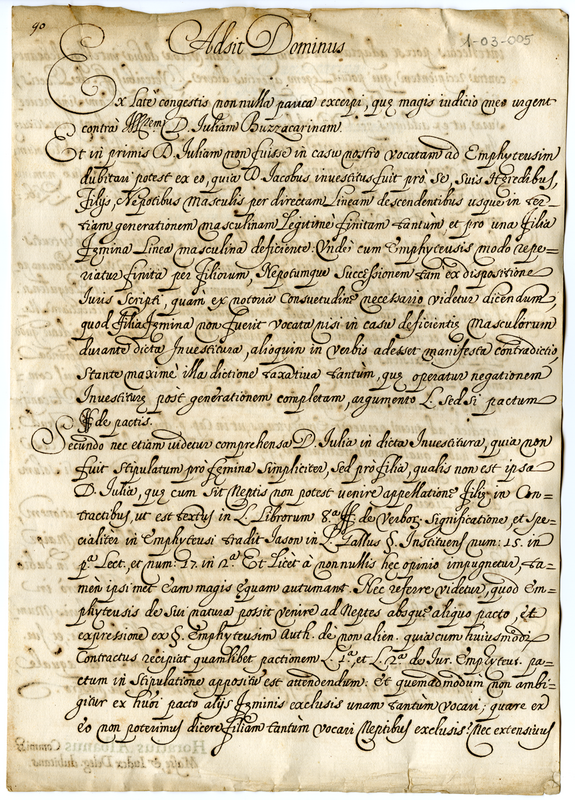 90
1-03-005
Adsit Dominus
Ex latè congestis non nulla pauca excerpi, quę magis iudicio meo urgent
contrà Illtrem D. Iuliam Buzzacarinam.
Et in primis D. Iuliam non fuisse in casu nostro vocatam ad Emphyteusim
dubitari potest ex eo, quia D Iacobus investitus fuit prò Se, Suis Hęredibus,
filijs, Nepotibus Masculis per directam Lineam descendentibus usque in ter=
tiam generationem masculinam Legitimè finitam tantùm, et pro una filia
fęmina Linea masculina deficiente: Undè cum Emphyteusis modo repe=
riatur finita per filiorum, Nepotumque Successionem tàm ex dispositione
Iuris Scripti, quam ex notoria Consuetudine necessario videtur dicendum,
quod filia fęmina non fuerit vocata nisi in casu deficientię Masculorum
durante dicta Investitura, alioquin in verbis adesset manifesta contradictio
Stante maximè illa dictione taxativa tantum, quę operatur negationem
Investiturę post generationem completam, argumento L. sed si pactum
ff de pactis.
Secundo nec etiam videtur comprehensa D. Iulia in dicta Investitura, quia non
fuit Stipulatum prò fęmina Simpliciter, Sed prò filia, qualis non est ipsa
D. Iulia, quę cum Sit Neptis non potest uenire appellatione filię in Con=
tractibus, ut est textus in L. Librorum §.a ff de Verbor. Significatione, et Spe=
cialiter in Emphyteusi tradit Iason in L. Gallus §. Instituens num: 15. in
p.a Lect. et num: 17. in 2.a Et Licèt à non nullis hęc opinio impugnetur, ta=
mèn ipsi met eam magis ęquam autumant. Nec referre videtur, quod Em=
phyteusis de Sui natura possit venire ad Neptes absque aliquo pacto, et
expressione ex §. Emphyteusim Auth. de non alien. quia cum huiusmodi
Contractus recipiat quamlibet pactionem L. p.a et L. 2.a de Iur. Emphyteut. pa=
ctum in Stipulatione appositum est attendendum. Et quemadmodum non ambi=
gitur ex hu.oi pacto alijs fęminis exclusis unam tantùm vocari; quare ex
eo non poterimus dicere filiam tantùm vocari Neptibus exclusis? Nec extensiuus
Horatius Albanus Commis